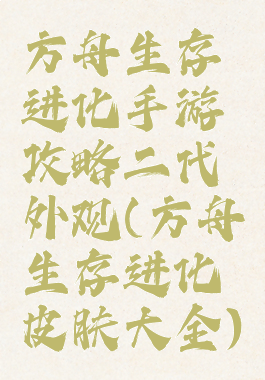 方舟生存
进化手游
攻略二代
外观(方舟
生存进化
皮肤大全)